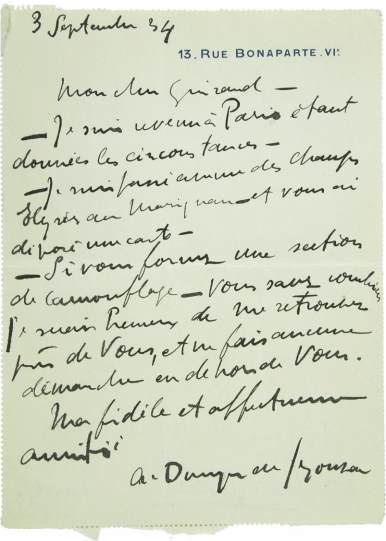 3 Septembre 34
13. RUE BONAPARTE. VIᵉ.
Mon cher Guirand –
– Je suis revenu à Paris étant
données les circonstances –
– Je suis passé avenue des Champs
Elysées au Marignan – et vous ai
déposé une carte –
– Si vous formez une section
de camouflage – Vous savez combien
je serais heureux de me retrouver
près de Vous, et ne fais aucune
démarche en dehors de Vous.
Ma fidèle et affectueuse
amitié
A. Dunoyer de Segonzac